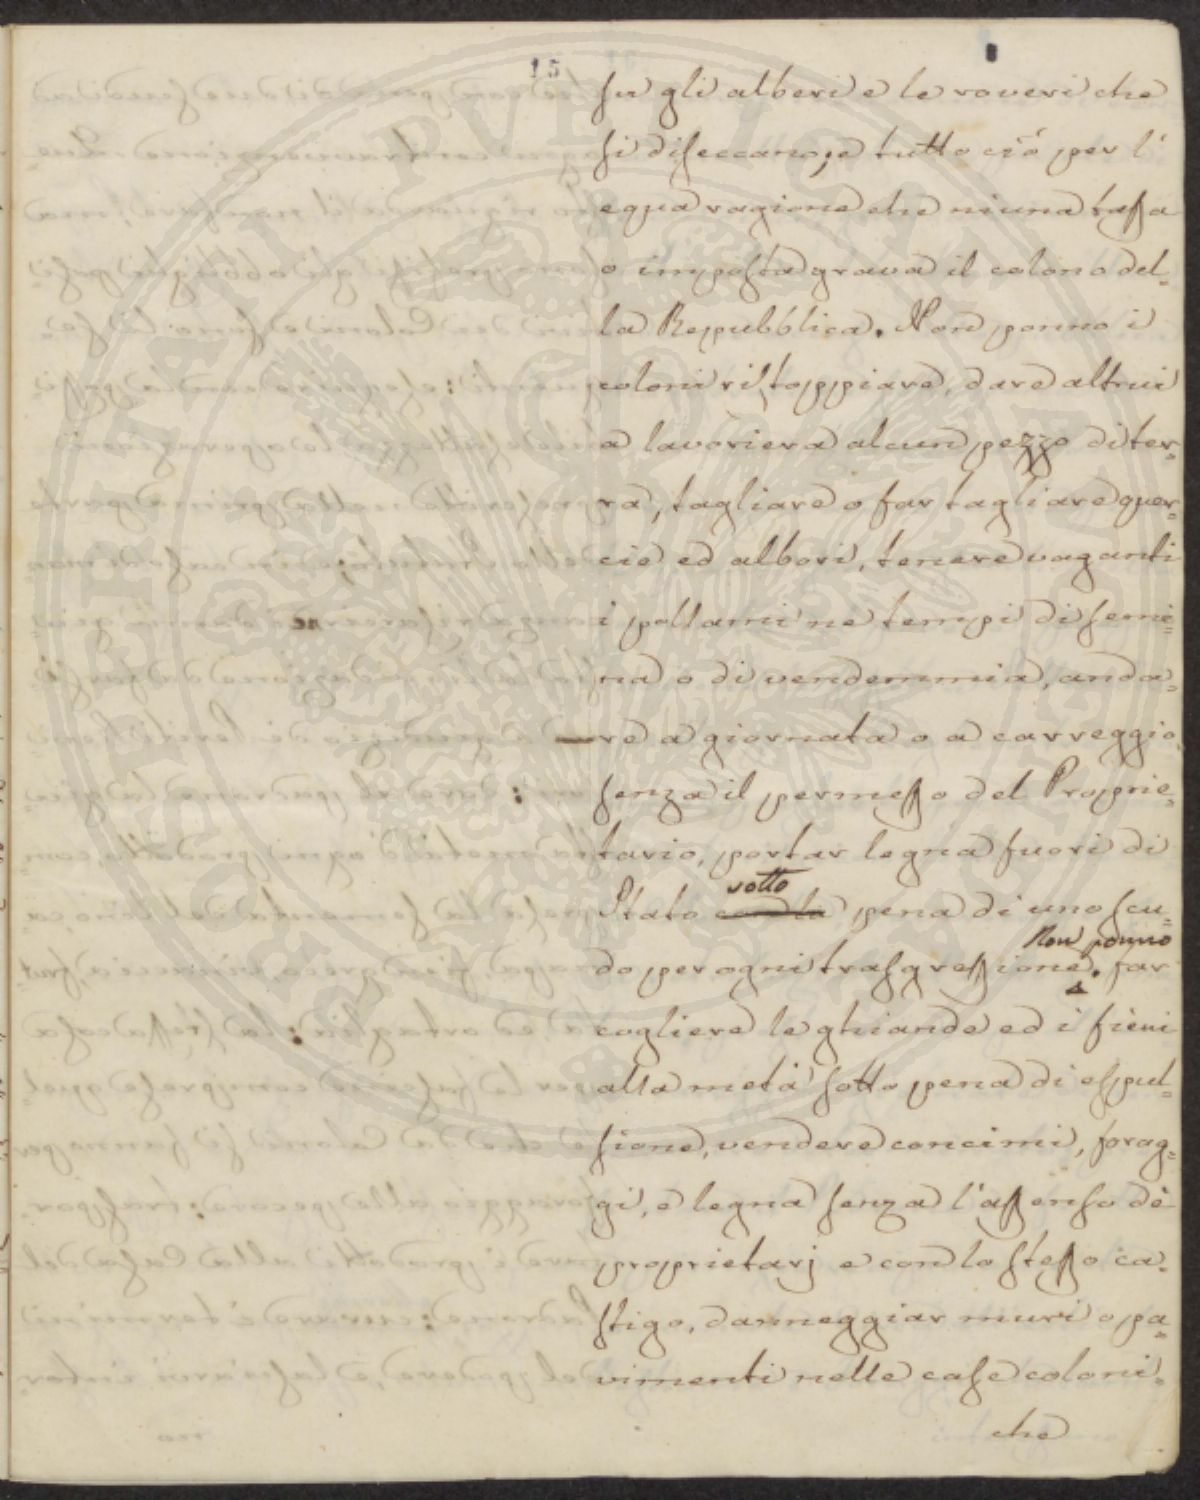 15
su gli alberi e le roveri che
si diseccano, e tutto ciò per l'
egua ragione che niuna tassa
o imposta grava il colono del-
la Repubblica. Non ponno i
coloni ristoppiare, dare altrui
a lavoriera alcun pezzo di ter-
ra, tagliare o far tagliare quer-
cie ed albori, tenere vaganti
i pollami ne tempi di semi-
na o di vendemmia, anda-
re a giornata o a carreggio
senza il permesso del Proprie-
tario, portar legna fuori di
sotto
Stato con la pena di uno scu-
Non ponno
do per ogni trasgressione. far
cogliere le ghiande ed i fieni
alla metà sotto pena di espul-
sione, vendere concimi, forag-
gi, e legna senza l'assenso dè
proprietarj e con lo stesso ca-
stigo, danneggiar muri o pa-
vimenti nelle case coloni-
che